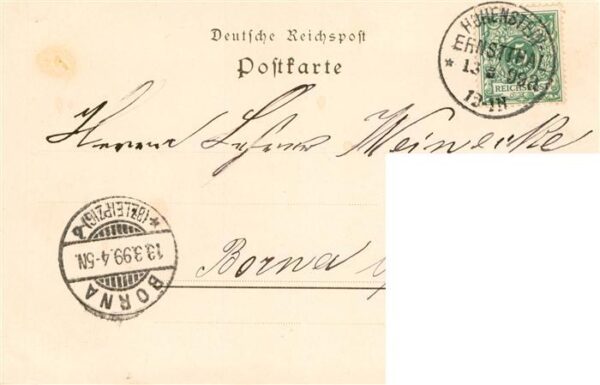 Deutsche Reichspost
Postkarte
HOHENSTEIN-
ERNSTTHAL
* 13 3 99 *
12-1N
REICHSPOST
Herrn Lehrer Weinecke
Borna
*(BZ.LEIPZIG)
13.3.99.4-5N.
BORNA